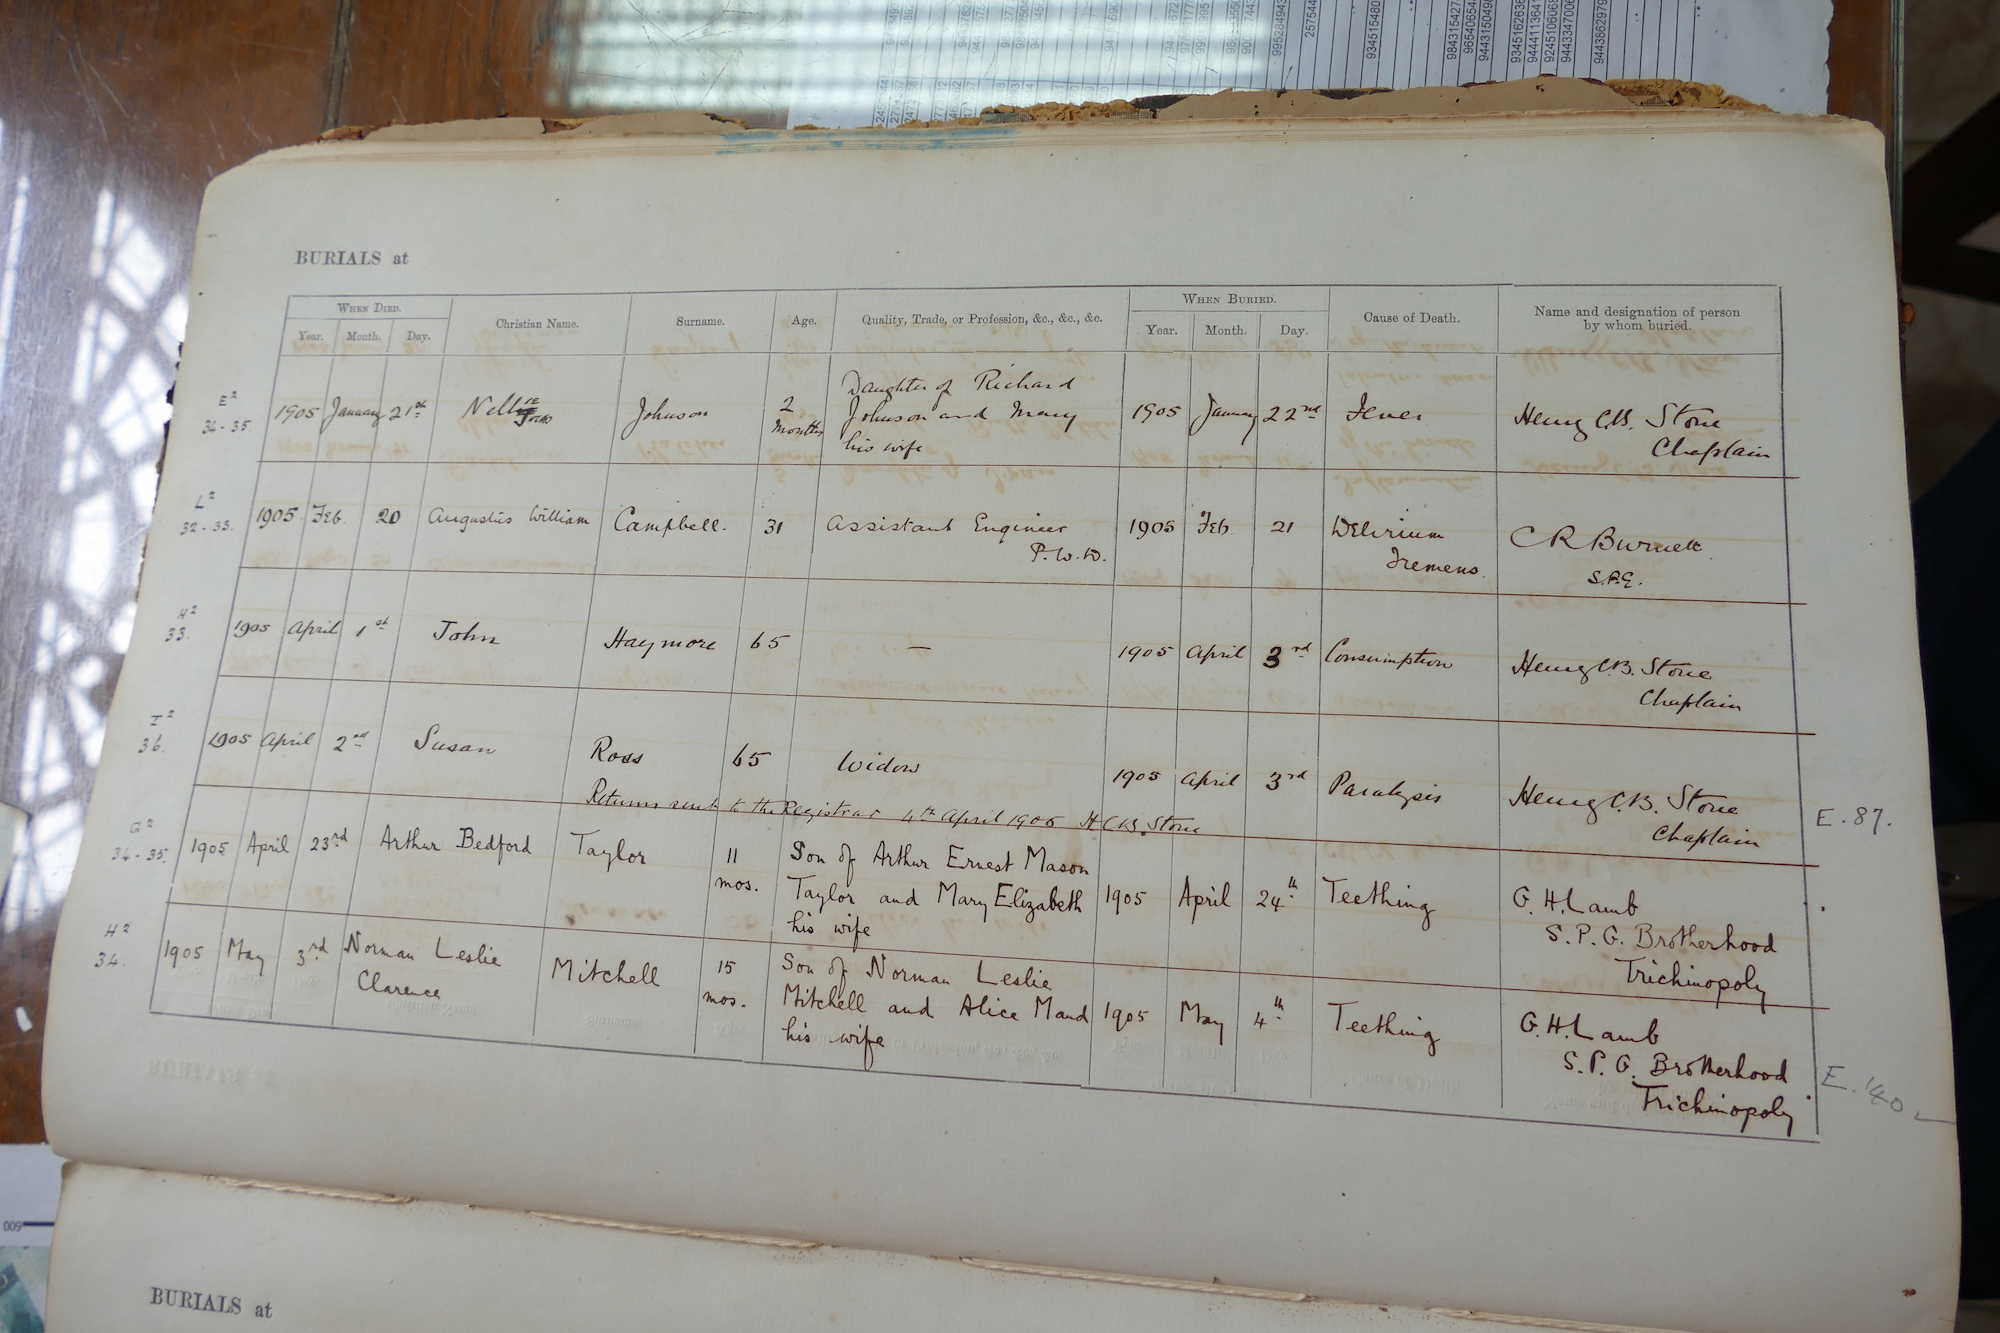 BURIALS at
WHEN DIED.
Year. Month. Day.
Christian Name.
Surname.
Age.
Quality, Trade, or Profession, &c., &c., &c.
WHEN BURIED.
Year. Month. Day.
Cause of Death.
Name and designation of person
by whom buried.
E²
34-35.
1905 January 21st Nellie Johnson 2 months
Daughter of Richard
Johnson and Mary
his wife
1905 January 22nd Fever
Henry C.B. Stone
Chaplain
L²
32-33.
1905 Feb. 20 Augustus William Campbell. 31
Assistant Engineer
P.W.D.
1905 Feb. 21
Delirium
Tremens.
C R Burnett
S.P.G.
H²
33.
1905 April 1st John Haymore 65 —
1905 April 3rd Consumption
Henry C.B. Stone
Chaplain
I²
36.
1905 April 2nd Susan Ross 65 Widow
1905 April 3rd Paralysis
Henry C.B. Stone
Chaplain
E.87.
Returns sent to the Registrar 4th April 1905 H.C.B. Stone
G²
34-35.
1905 April 23rd Arthur Bedford Taylor 11 mos.
Son of Arthur Ernest Mason
Taylor and Mary Elizabeth
his wife
1905 April 24th Teething
G.H.Lamb
S.P.G. Brotherhood
Trichinopoly
H²
34.
1905 May 3rd Norman Leslie
Clarence
Mitchell 15 mos.
Son of Norman Leslie
Mitchell and Alice Maud
his wife
1905 May 4th Teething
G.H.Lamb
S.P.G. Brotherhood
Trichinopoly
E.140
BURIALS at
009